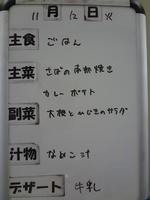 11 月 12 日 火
主食 ごはん
主菜 さばの南部焼き
カレーポテト
副菜 大根とひじきのサラダ
汁物 なめこ汁
デザート 牛乳